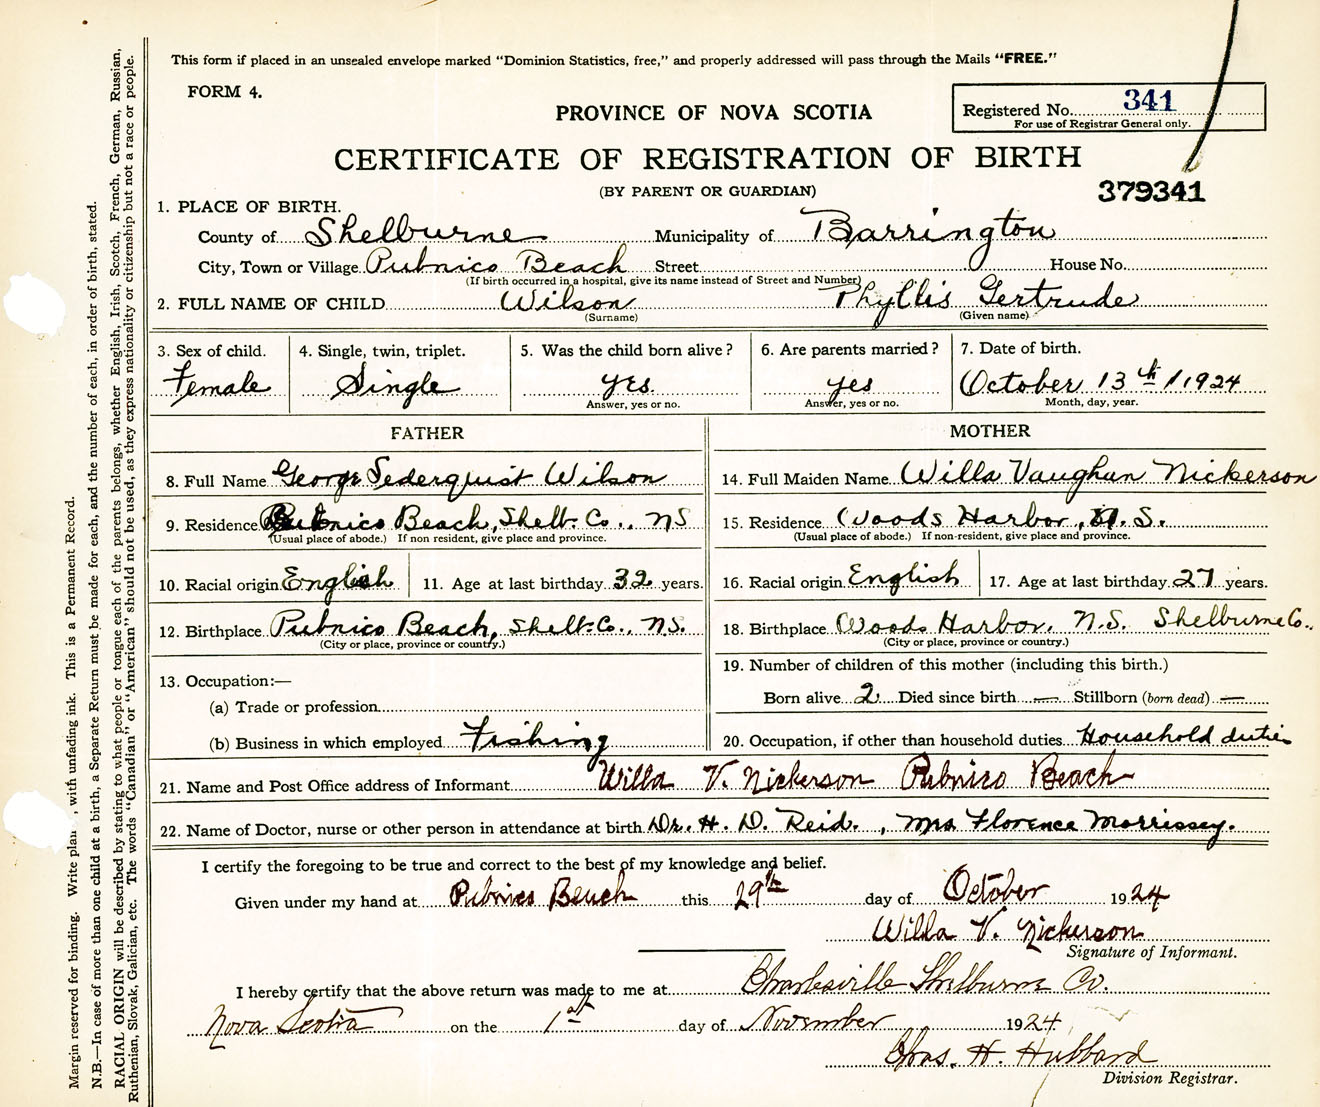 This form if placed in an unsealed envelope marked "Dominion Statistics, free," and properly addressed will pass through the Mails "FREE."
FORM 4.
PROVINCE OF NOVA SCOTIA
Registered No. 341
For use of Registrar General only.
CERTIFICATE OF REGISTRATION OF BIRTH
(BY PARENT OR GUARDIAN)
379341
1. PLACE OF BIRTH.
County of Shelburne Municipality of Barrington
City, Town or Village Pubnico Beach Street House No.
(If birth occurred in a hospital, give its name instead of Street and Number)
2. FULL NAME OF CHILD Wilson Phyllis Gertrude
(Surname) (Given name)
3. Sex of child. 4. Single, twin, triplet. 5. Was the child born alive? 6. Are parents married? 7. Date of birth.
Female Single yes. yes October 13th 1924
Answer, yes or no. Answer, yes or no. Month, day, year.
FATHER MOTHER
8. Full Name George Sederquist Wilson 14. Full Maiden Name Willa Vaughan Nickerson
9. Residence Pubnico Beach, Shelb. Co., NS 15. Residence Woods Harbor, N.S.
(Usual place of abode.) If non resident, give place and province. (Usual place of abode.) If non-resident, give place and province.
10. Racial origin English 11. Age at last birthday 32 years. 16. Racial origin English 17. Age at last birthday 27 years.
12. Birthplace Pubnico Beach, Shelb. Co., N.S. 18. Birthplace Woods Harbor. N.S. Shelburne Co.
(City or place, province or country.) (City or place, province or country.)
13. Occupation:— 19. Number of children of this mother (including this birth.)
(a) Trade or profession Born alive 2 Died since birth — Stillborn (born dead) —
(b) Business in which employed Fishing 20. Occupation, if other than household duties Household duties
21. Name and Post Office address of Informant Willa V. Nickerson Pubnico Beach
22. Name of Doctor, nurse or other person in attendance at birth Dr. H. D. Reid. , Mrs Florence Morrissey.
I certify the foregoing to be true and correct to the best of my knowledge and belief.
Given under my hand at Pubnico Beach this 29th day of October 1924
Willa V. Nickerson
Signature of Informant.
I hereby certify that the above return was made to me at Charlesville Shelburne Co.
Nova Scotia on the 1st day of November 1924
Chas. H. Hubbard
Division Registrar.
Margin reserved for binding. Write plain , with unfading ink. This is a Permanent Record.
N.B.—In case of more than one child at a birth, a Separate Return must be made for each, and the number of each, in order of birth, stated.
RACIAL ORIGIN will be described by stating to what people or tongue each of the parents belongs, whether English, Irish, Scotch, French, German, Russian,
Ruthenian, Slovak, Galician, etc. The words "Canadian" or "American" should not be used, as they express nationality or citizenship but not a race or people.